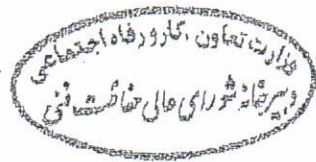 وزارت تعاون، کار و رفاه اجتماعی
دبیرخانه شورای عالی حفاظت فنی